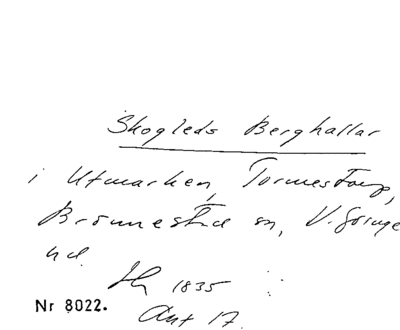 Skogleds Berghallar
i Utmarken, Tormestorp,
Brönnestad sn, V. Göinge
hd.
1835
Nr 8022.
Ant 17.